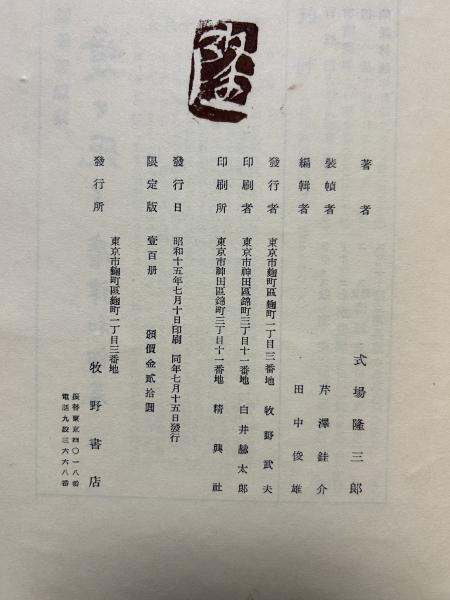 隆
著者　式場隆三郎
裝幀者　芹澤銈介
編輯者　田中俊雄
發行者　東京市麹町區麹町一丁目三番地　牧野武夫
印刷者　東京市神田區錦町三丁目十一番地　白井赫太郎
印刷所　東京市神田區錦町三丁目十一番地　精興社
發行日　昭和十五年七月十日印刷　同年七月十五日發行
限定版　壹百册　頒價金貳拾圓
發行所　東京市麹町區麹町一丁目三番地　牧野書店
振替東京四〇一八番
電話九段三六六八番